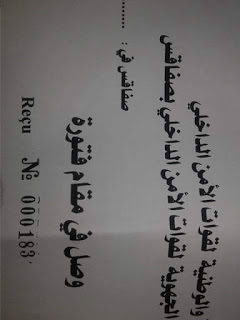 والوطنية لقوات الأمن الداخلي
الجهوية لقوات الأمن الداخلي بصفاقس
صفاقس في : ........
وصل في مقام فتورة
Reçu № 000183